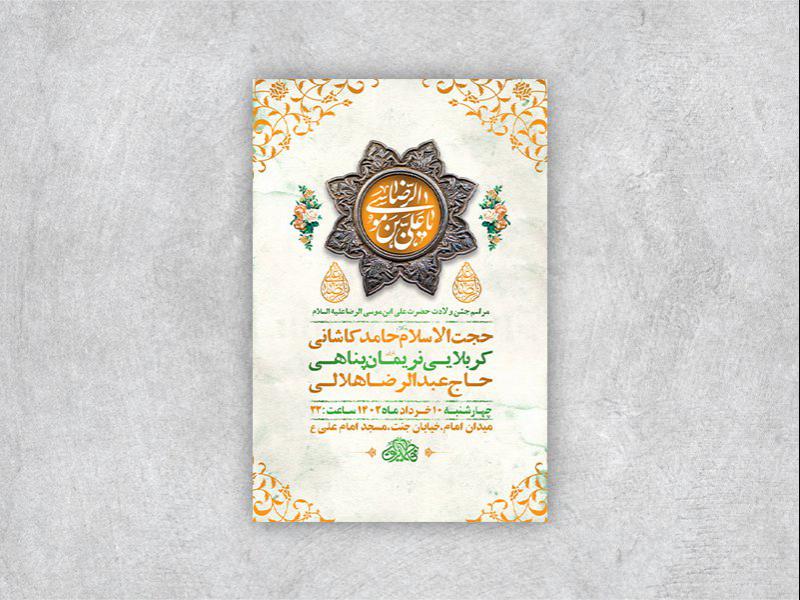 یا علی بن موسی الرضا
مراسم جشن ولادت حضرت علی ابن موسی الرضا علیه السلام
حجت الاسلام حامد کاشانی
کربلایی نریمان پناهی
حاج عبدالرضا هلالی
چهارشنبه ۱۰ خرداد ماه ۱۴۰۲ ساعت: ۲۲
میدان امام، خیابان جنت، مسجد امام علی ع